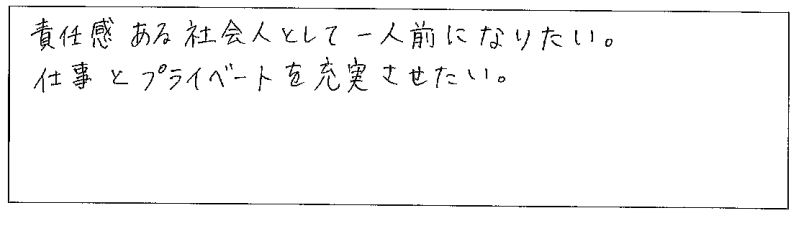 責任感ある社会人として一人前になりたい。
仕事とプライベートを充実させたい。